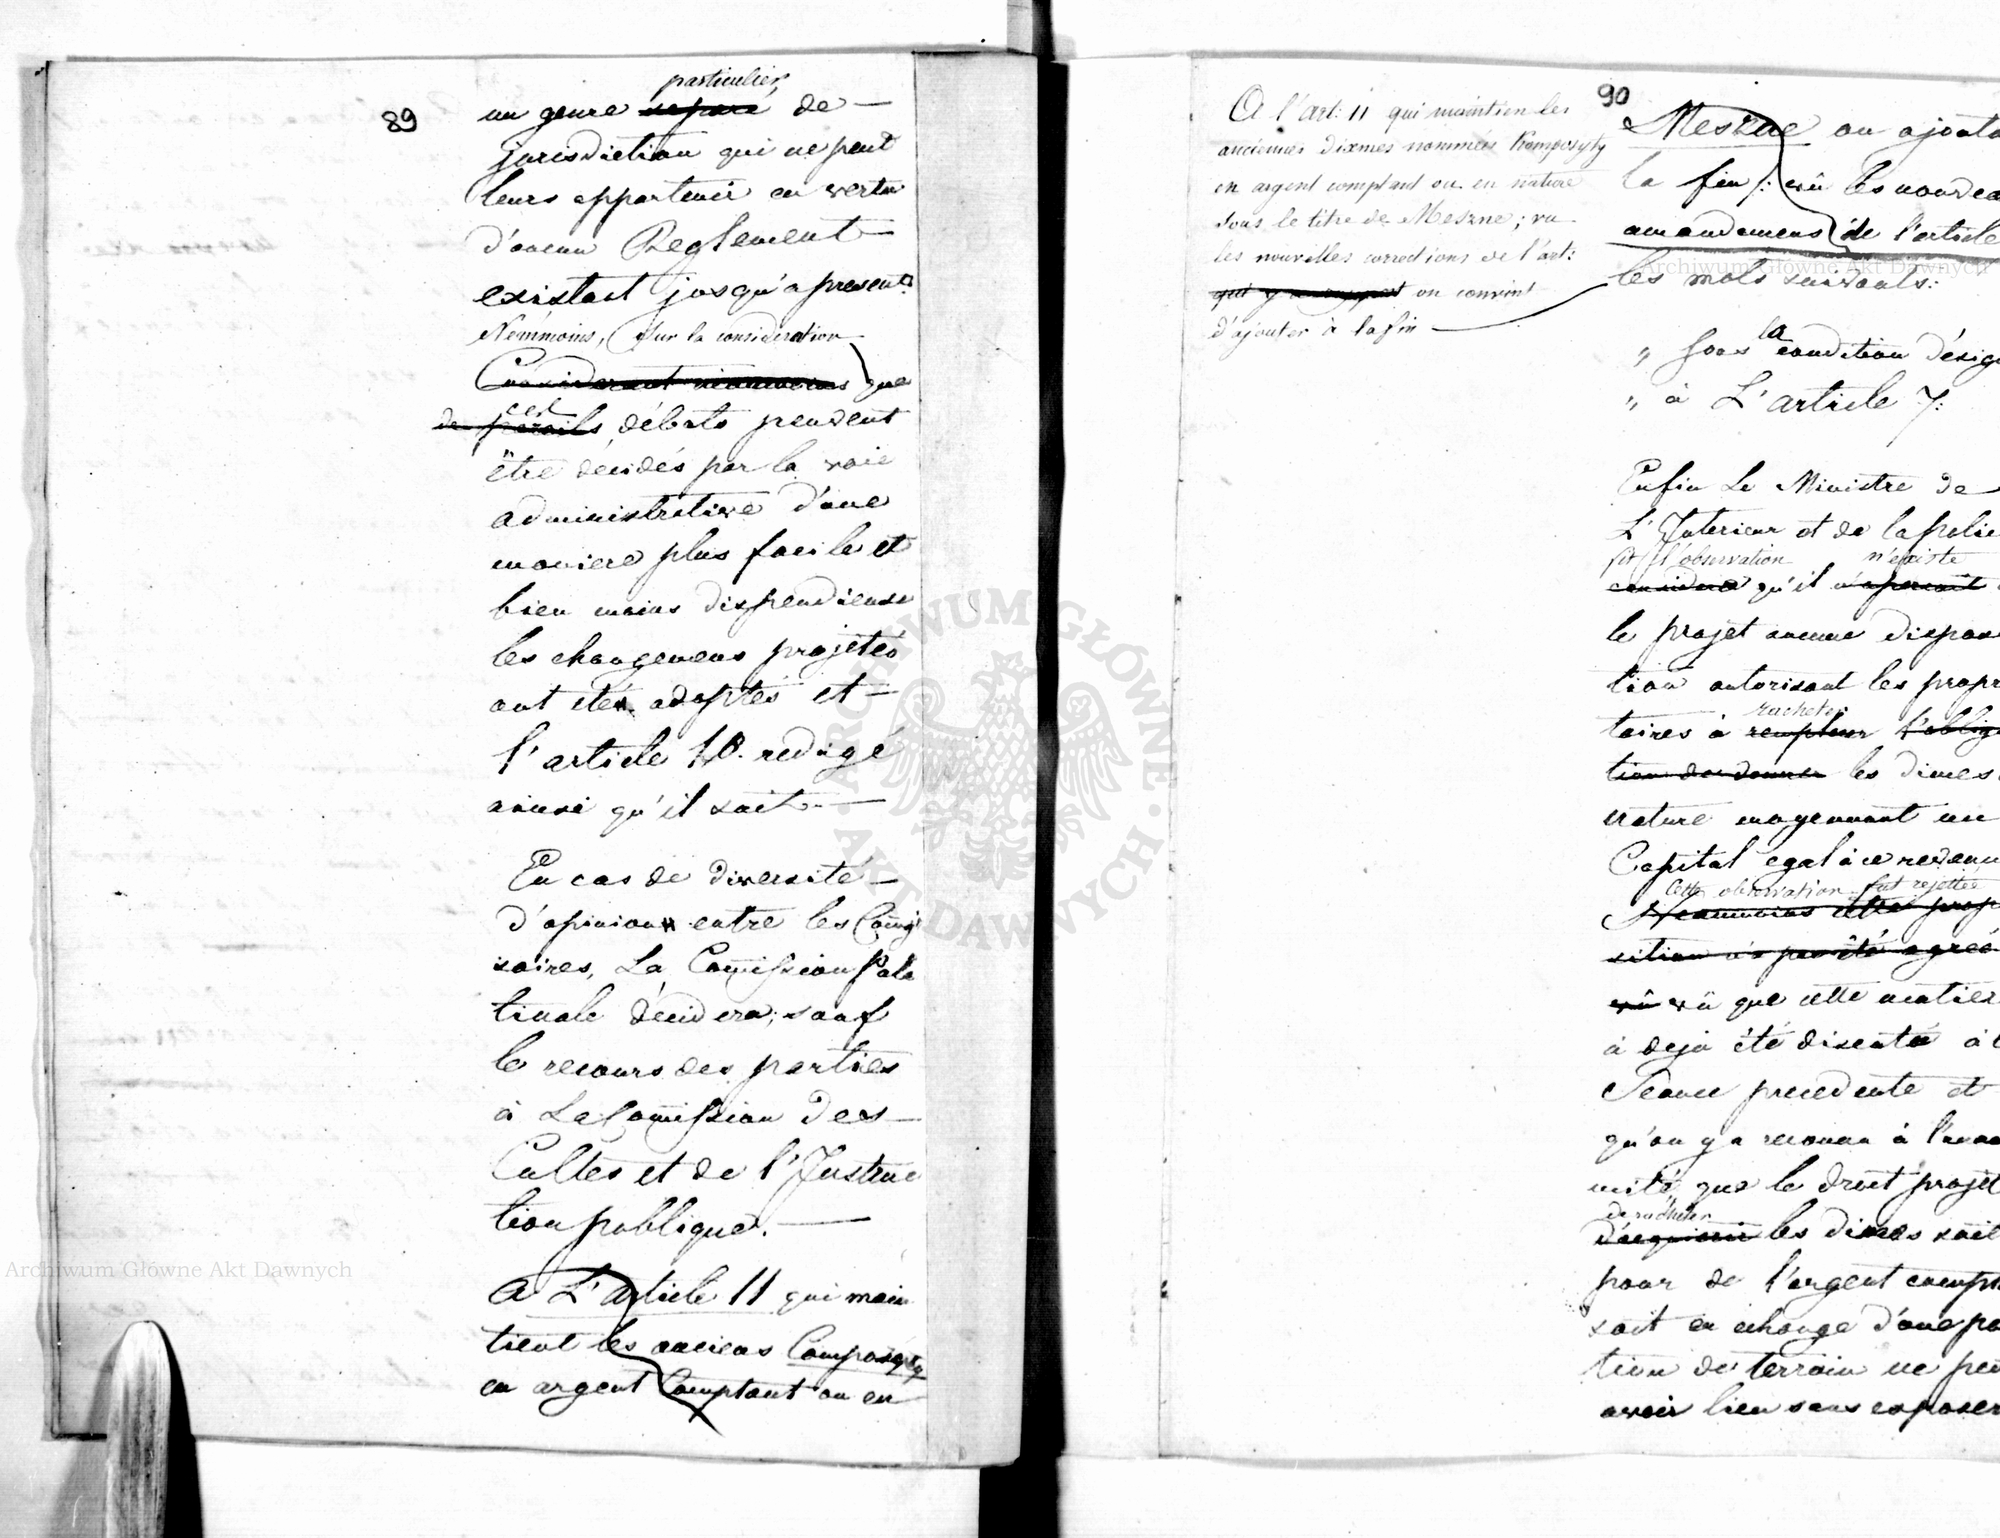 89
particulier
un genre separé de —
jurisdiction qui ne peut
leurs appartenir en vertu
d'aucun Reglement
existant jusqu'a present.
Neanmoins, sur la consideration
Considerant neanmoins que
cet
de pareils débats peuvent
être décidés par la voie
administrative d'une
maniere plus facile et
bien moins dispendieuse
les changemens projetés
ont eté adoptés et —
l'article 10. redigé
ainsi qu'il suit. —
En cas de diversité —
d'opinion entre les Comiss
saires, La Comission Pala
tinale décidera; sauf
le recours des parties
à La Comission des —
Cultes et de l'Instruc
tion publique. —
A L'Article 11 qui main
tient les anciens Composyty
en argent Comptant ou en
90
A l'Art: 11 qui maintien les
anciennes dixmes nommées Komposyty
en argent comptant ou en nature
sous le titre de Meszne; vu
les nouvelles corrections de l'art:
on convint
d'ajouter à la fin —
Meszne on ajouta
la fin: vû les nouvea
amandemens de l'article
les mots suivants:
la
„ sous condition désig
„ à L'article 7:
Enfin Le Ministre de —
L'Interieur et de la polic
fit l'observation n'existe
considera qu'il n'apercoit
le projet aucune dispos
tion autorisant les propr
racheter
taires à remplacer l'oblig
tion de donner les dimes
nature moyennant un
Capital egal à ce revenu
Cette observation fut rejettée
Neanmoins cette prop
sition n'a pas été agréé
vû vû que cette matier
à deja été discuté à l
Seance precedente et
qu'on y a reconnu à l'una
mité, que le droit projet
de racheter
d'acquerir les dimes soit
pour de l'argent compt
soit en echange d'une po
tion de terrain ne peu
avoir lieu sans exposer
ARCHIWUM GŁÓWNE · AKT DAWNYCH ·
Archiwum Główne Akt Dawnych
Archiwum Główne Akt Dawnych